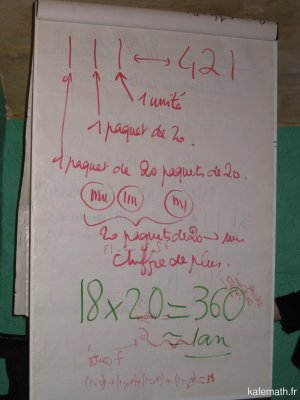 1 1 1 ↔ 421
1 unité
1 paquet de 20.
1 paquet de 20 paquets de 20.
20 paquets de 20 → un
chiffre de plus.
18 x 20 = 360
≈ 1an
kafemath.fr